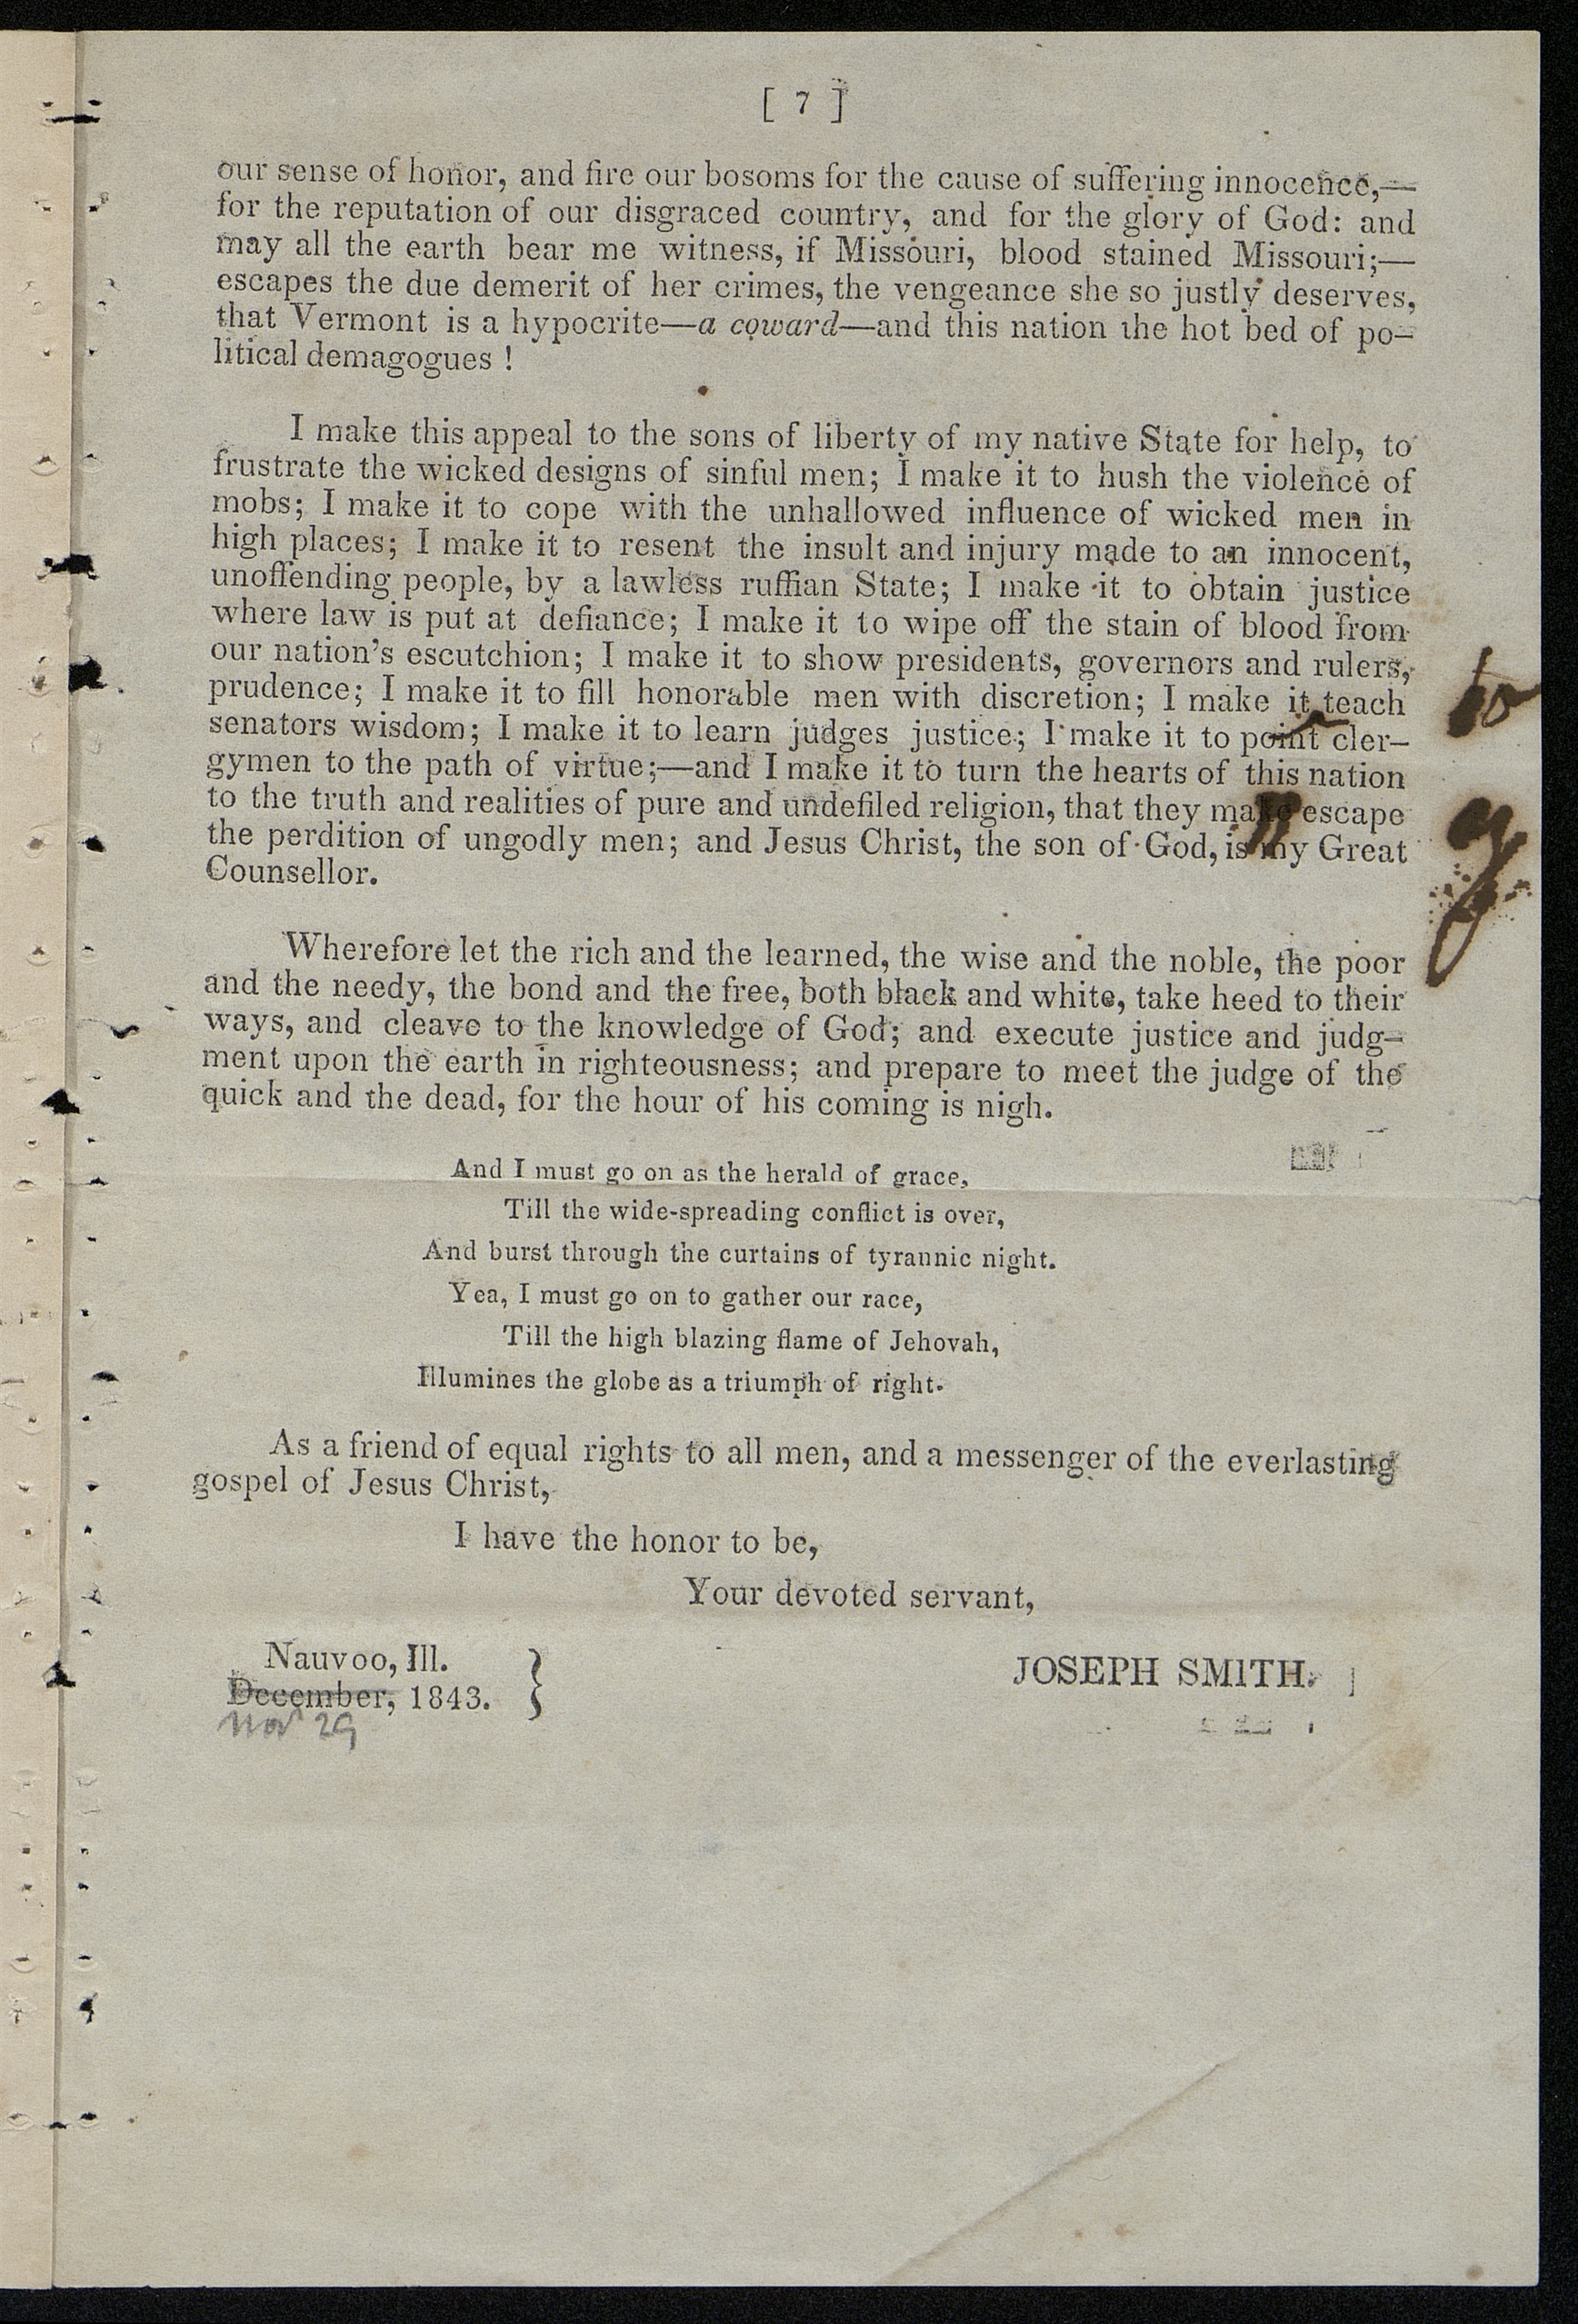 [ 7 ]
our sense of honor, and fire our bosoms for the cause of suffering innocence,—
for the reputation of our disgraced country, and for the glory of God: and
may all the earth bear me witness, if Missouri, blood stained Missouri;—
escapes the due demerit of her crimes, the vengeance she so justly deserves,
that Vermont is a hypocrite—a coward—and this nation the hot bed of po-
litical demagogues !
I make this appeal to the sons of liberty of my native State for help, to
frustrate the wicked designs of sinful men; I make it to hush the violence of
mobs; I make it to cope with the unhallowed influence of wicked men in
high places; I make it to resent the insult and injury made to an innocent,
unoffending people, by a lawless ruffian State; I make it to obtain justice
where law is put at defiance; I make it to wipe off the stain of blood from
our nation's escutchion; I make it to show presidents, governors and rulers,
prudence; I make it to fill honorable men with discretion; I make it teach
to
senators wisdom; I make it to learn judges justice; I make it to point cler-
gymen to the path of virtue;—and I make it to turn the hearts of this nation
to the truth and realities of pure and undefiled religion, that they make escape
y
the perdition of ungodly men; and Jesus Christ, the son of God, is my Great
Counsellor.
Wherefore let the rich and the learned, the wise and the noble, the poor
and the needy, the bond and the free, both black and white, take heed to their
ways, and cleave to the knowledge of God; and execute justice and judg-
ment upon the earth in righteousness; and prepare to meet the judge of the
quick and the dead, for the hour of his coming is nigh.
And I must go on as the herald of grace,
Till the wide-spreading conflict is over,
And burst through the curtains of tyrannic night.
Yea, I must go on to gather our race,
Till the high blazing flame of Jehovah,
Illumines the globe as a triumph of right.
As a friend of equal rights to all men, and a messenger of the everlasting
gospel of Jesus Christ,
I have the honor to be,
Your devoted servant,
Nauvoo, Ill.
JOSEPH SMITH.
December, 1843. }
Nov 29